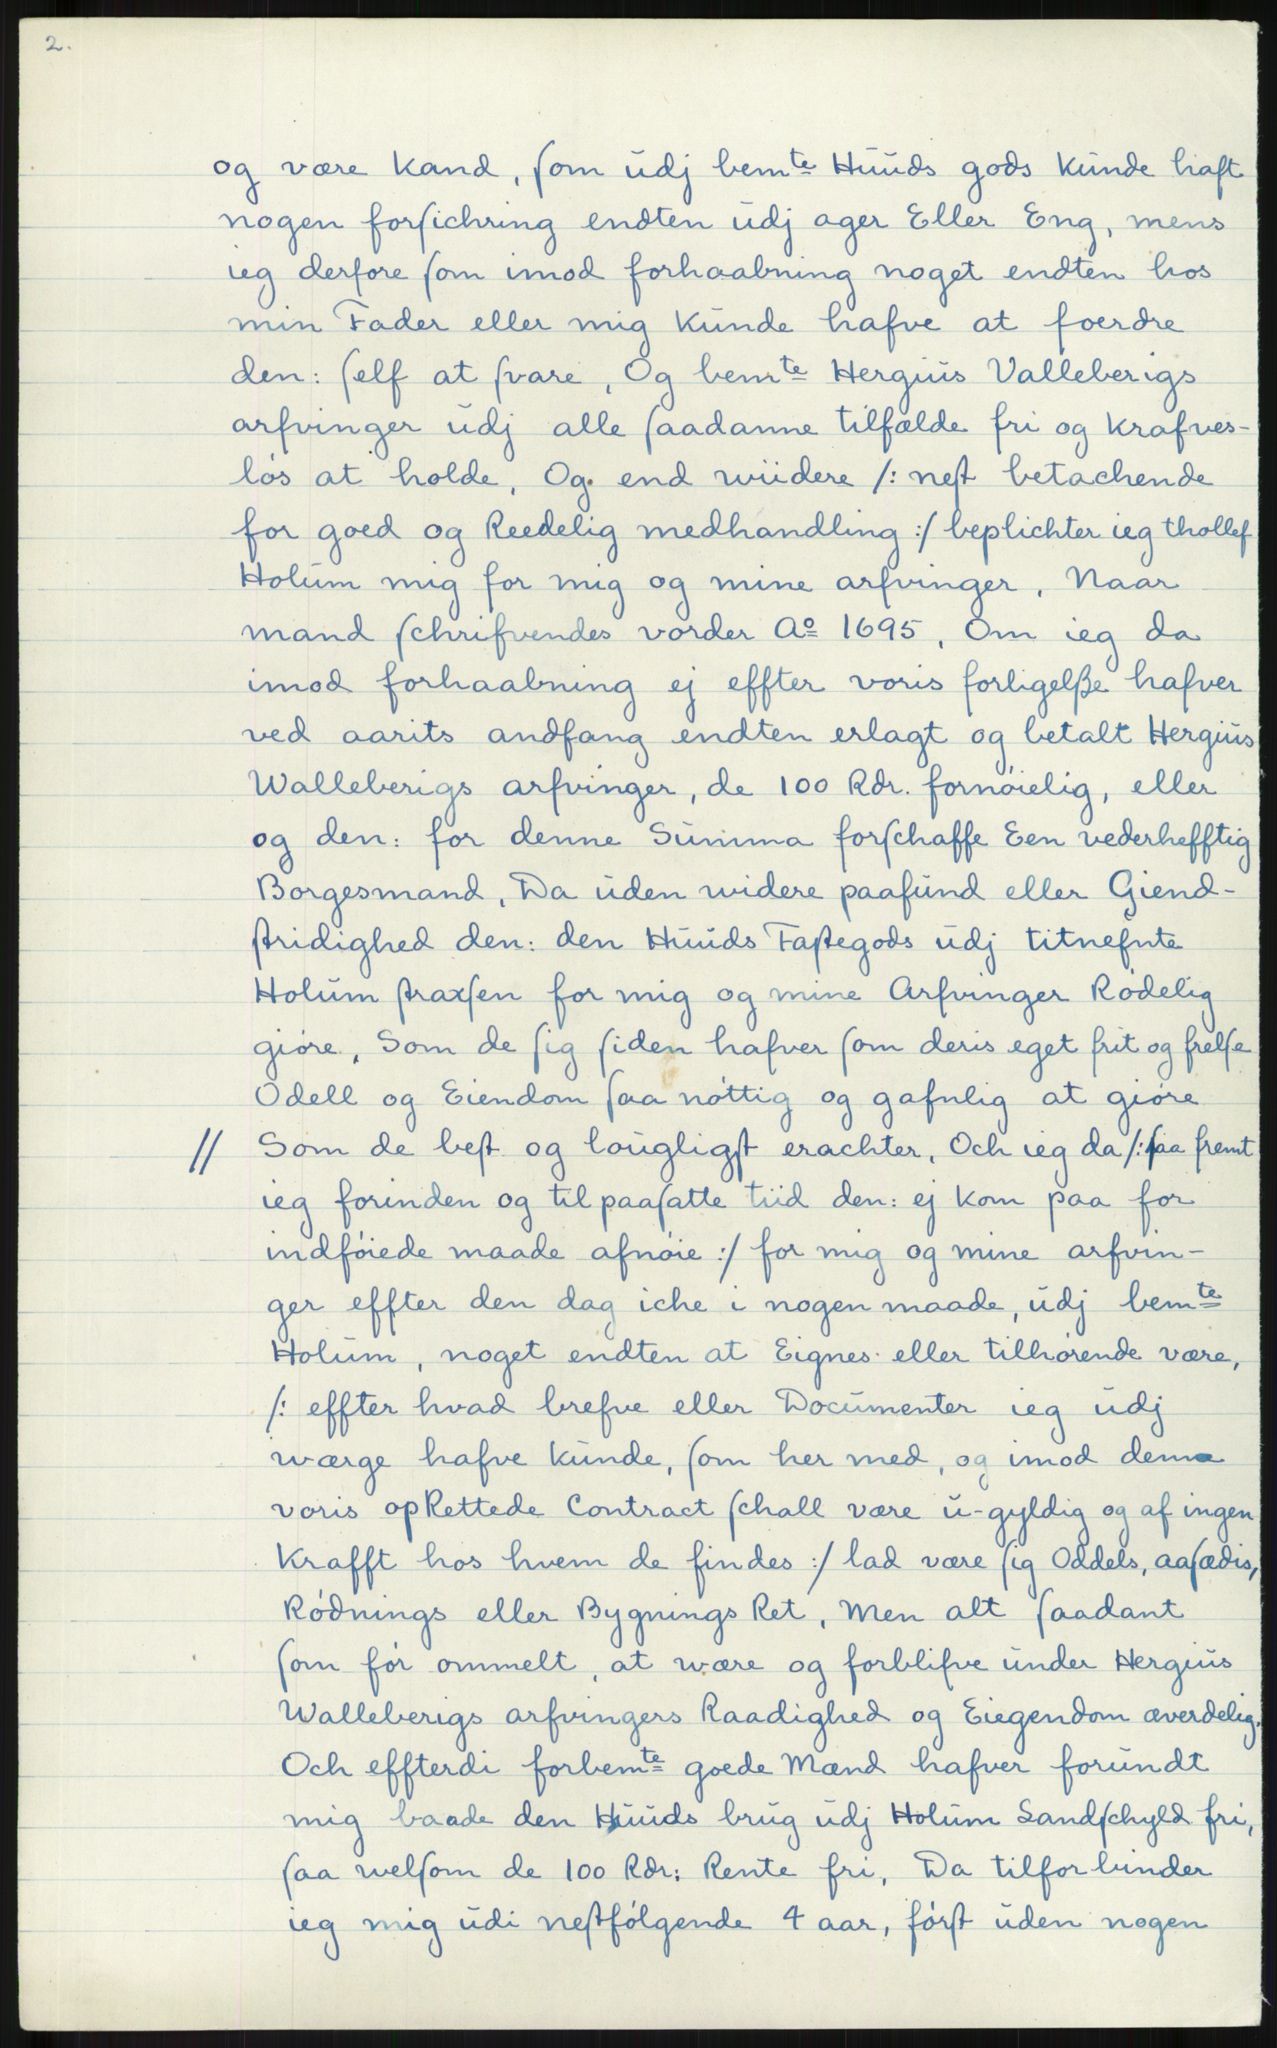 2.
og være kand, som udj bemte Huuds gods kunde haft
nogen forsichring endten udj ager Eller Eng, mens
ieg derfore som imod forhaabning noget endten hos
min Fader eller mig kunde hafve at foerdre
den: self at svare, Og bemte Hergius Valleberigs
arfvinger udj alle saadanne tilfælde fri og krafves-
løs at holde, Og end wiidere /: nest betachende
for goed og Reedelig medhandling :/ beplichter ieg thollef
Holum mig for mig og mine arfvinger, Naar
mand schrifvendes vorder Ao 1695, Om ieg da
imod forhaabning ej effter voris forligelße hafver
ved aarits andfang endten erlagt og betalt Hergius
Walleberigs arfvinger, de 100 Rdr. fornøielig, eller
og den: for denne Summa forschaffe Een vederhefftig
Borgesmand, Da uden widere paafund eller Giend-
stridighed den: den Huuds Fastegods udj titnefnte
Holum straxsen for mig og mine Arfvinger Rødelig
giøre, Som de sig siden hafver som deris eget frit og frelse
Odell og Eiendom saa nøttig og gafnlig at giøre
// Som de best og lougligst erachter, Och ieg da /: saa fremt
ieg forinden og til paasatte tiid den: ej kom paa for
indføiede maade afnøie :/ for mig og mine arfvin-
ger effter den dag iche i nogen maade, udj bemte
Holum, noget endten at Eignes eller tilhørende være,
/: effter hvad brefve eller Documenter ieg udj
wærge hafve kunde, som her med, og imod denne
voris opRettede Contract schall være u-gyldig og af ingen
Krafft hos hvem de findes :/ lad være sig Oddels, aasædis,
Rødnings eller Bygnings Ret, Men alt saadant
som før ommelt, at wære og forblifve under Hergius
Walleberigs arfvingers Raadighed og Eiegendom æverdelig.
Och effterdi forbemte goede Mænd hafver forundt
mig baade den Huuds brug udj Holum Landschyld fri,
saa welsom de 100 Rdr: Rente fri, Da tilforbinder
ieg mig udi nestfølgende 4 aar, først uden nogen